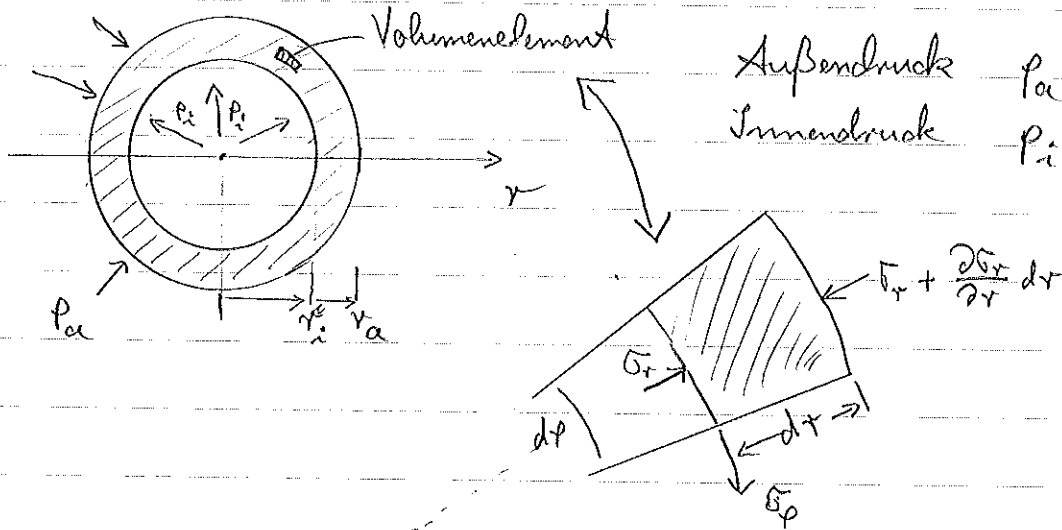 Volumenelement
Außendruck pa
Innendruck pi
pi pi
r
pa
ri ra
σr + ∂σr/∂r dr
σr
dφ
dr
σφ